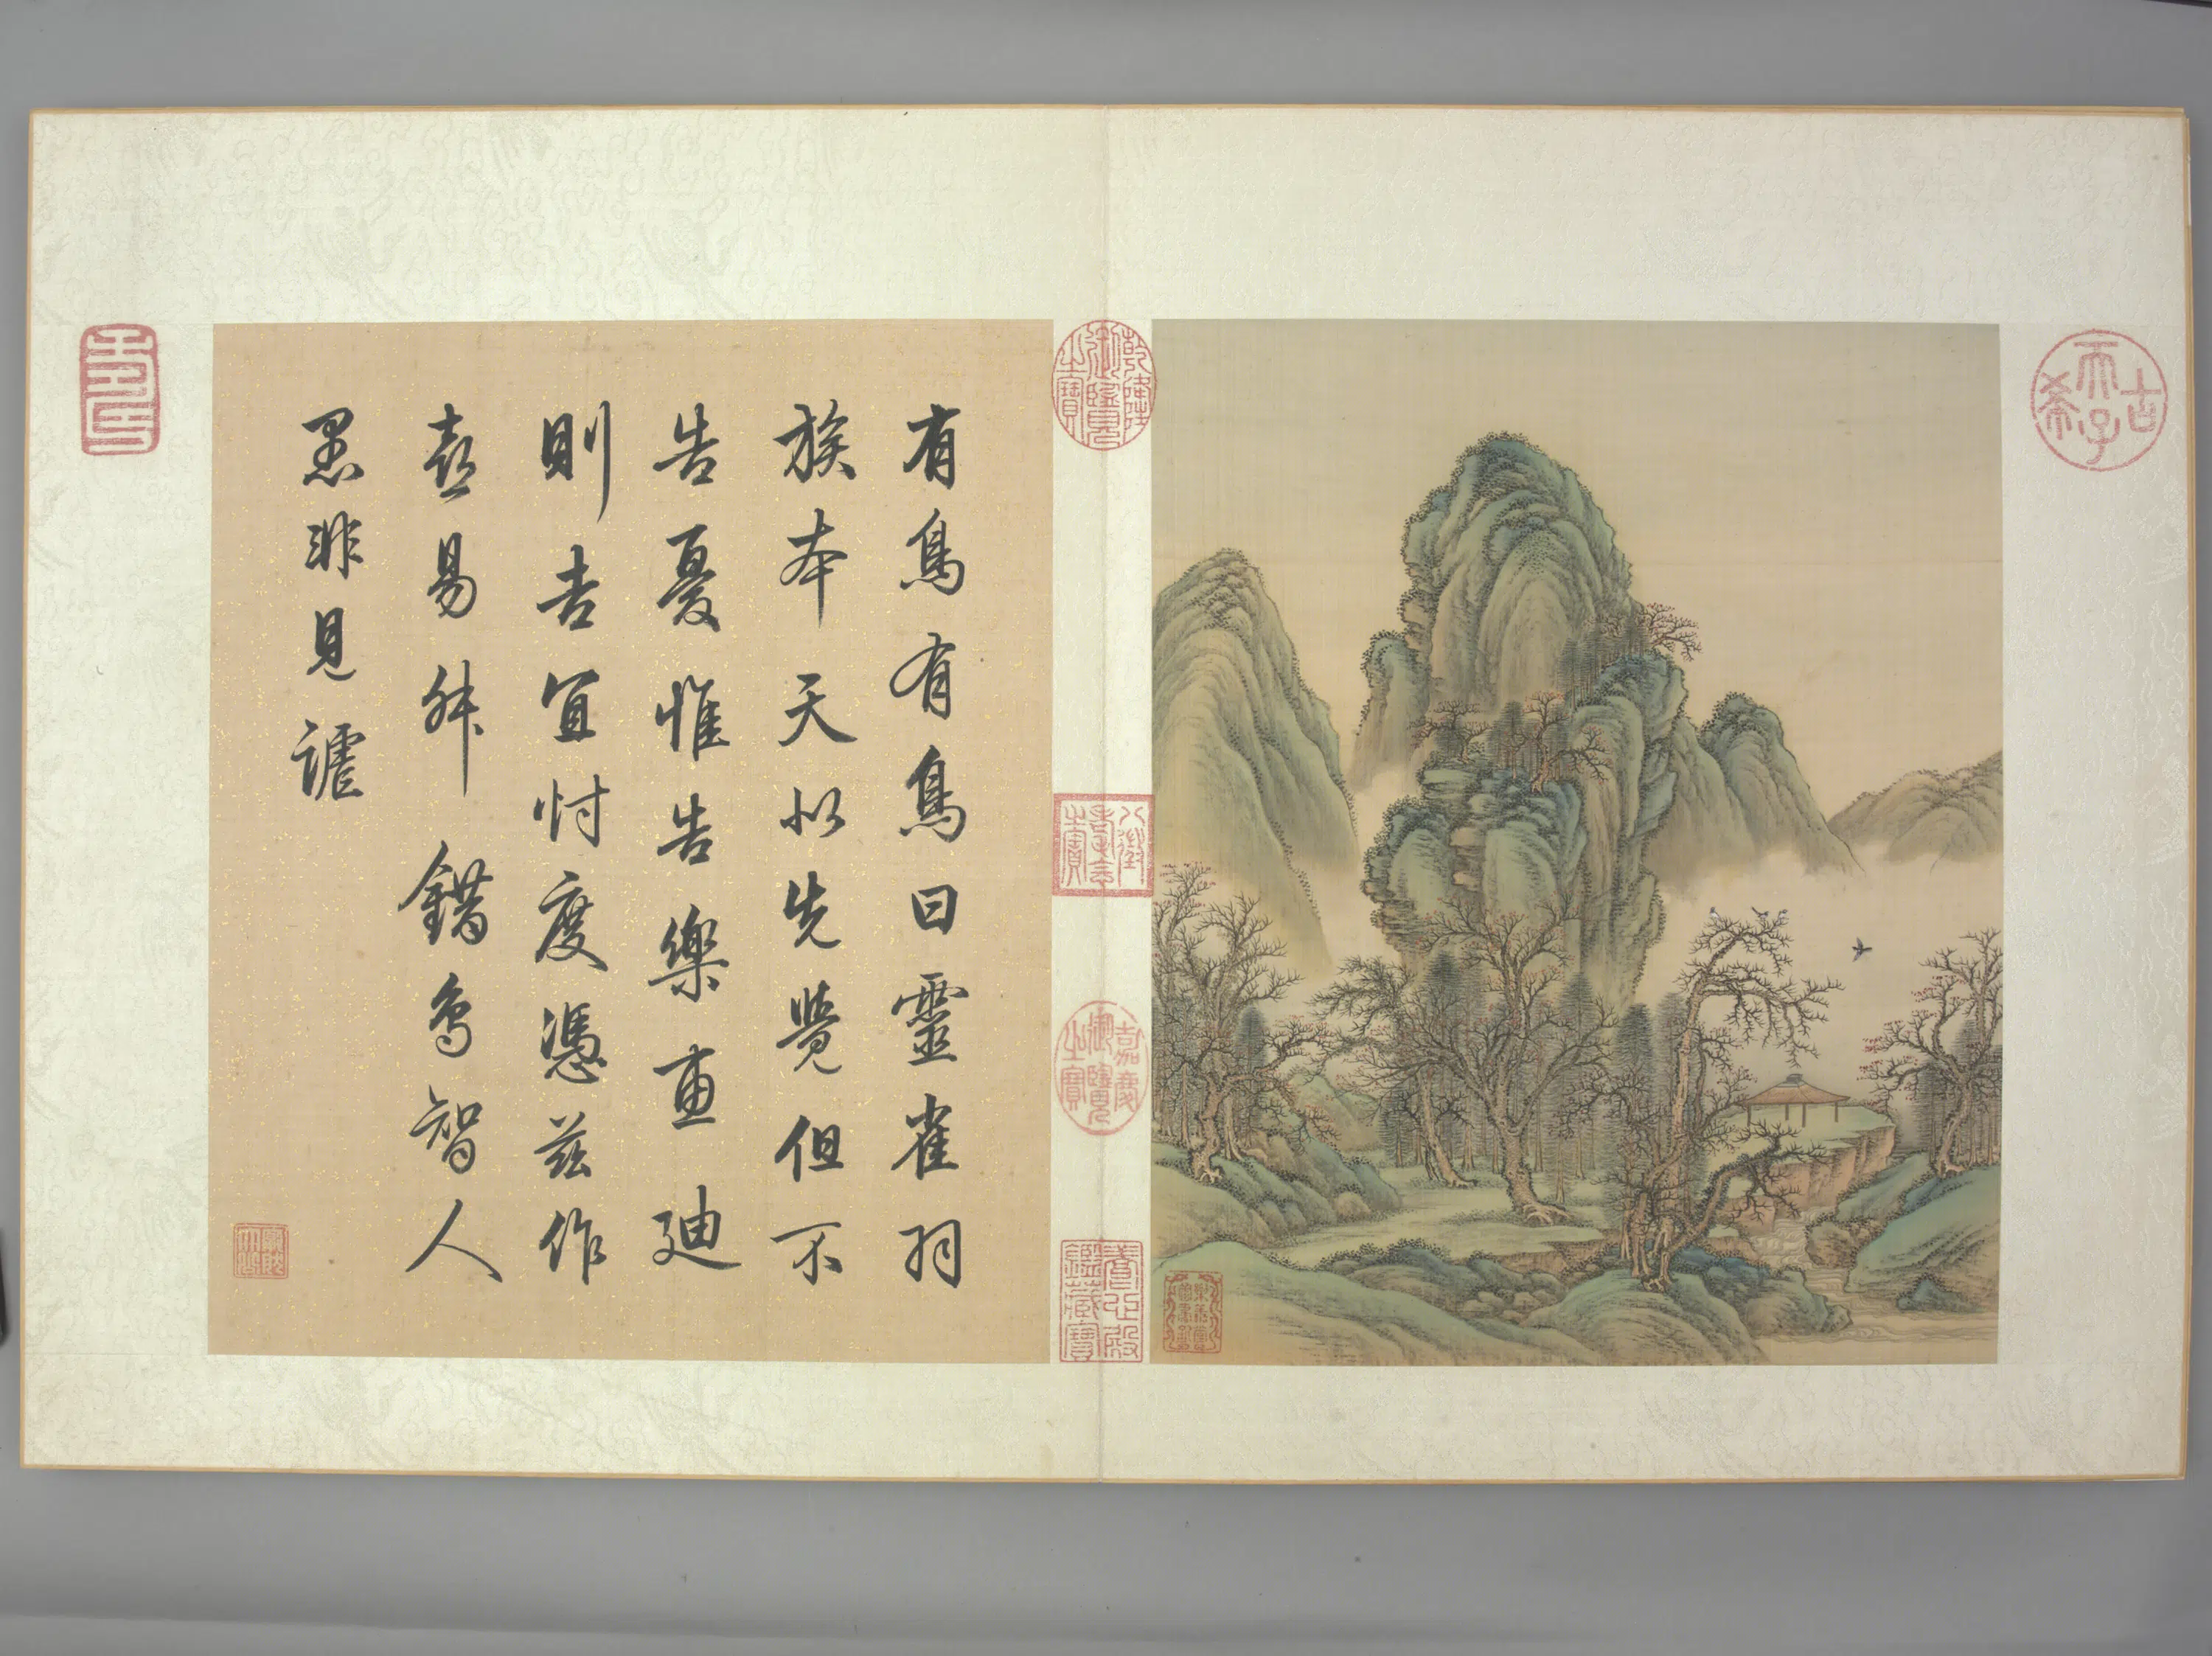 有鳥有鳥曰靈雀羽
族本天以先覺但不
告憂惟告樂惠迪
則吉宜忖度憑茲作
喜易舛錯鳥智人
愚非見謔
古希天子
壽
乾隆御覽之寶
八徵耄念之寶
嘉慶御覽之寶
養心殿鑑藏寶